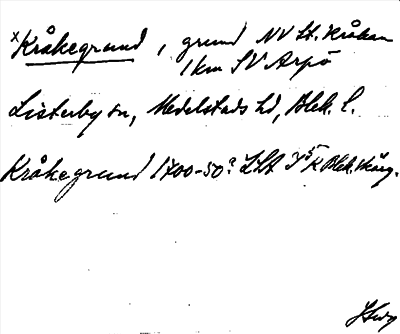 x Kråkegrund, grund NV St. Kråkan
1 km SV Arpö
Listerby sn, Medelstads hd, Blek. l.
Kråkegrund 1700-50? LSA I 5 K Blek. skärg.